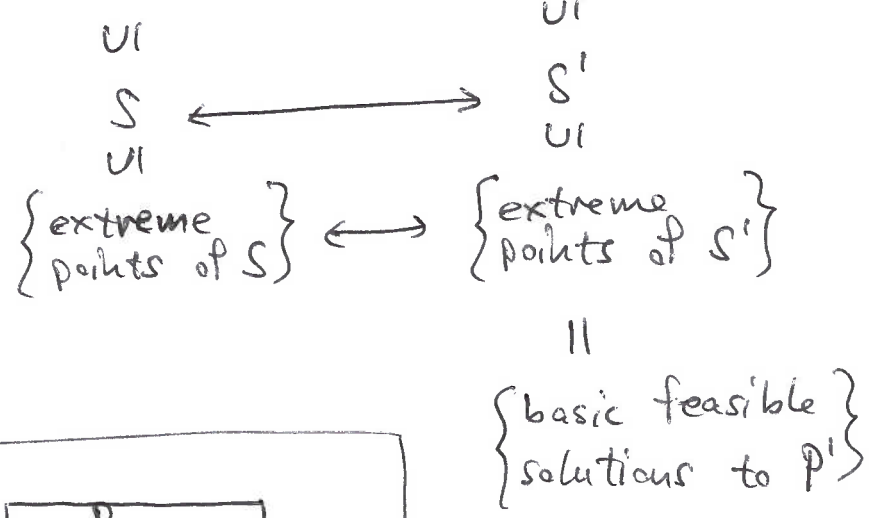 U(
U(
S ⟷ S'
U( U(
{extreme points of S} ⟷ {extreme points of S'}
||
{basic feasible solutions to P'}